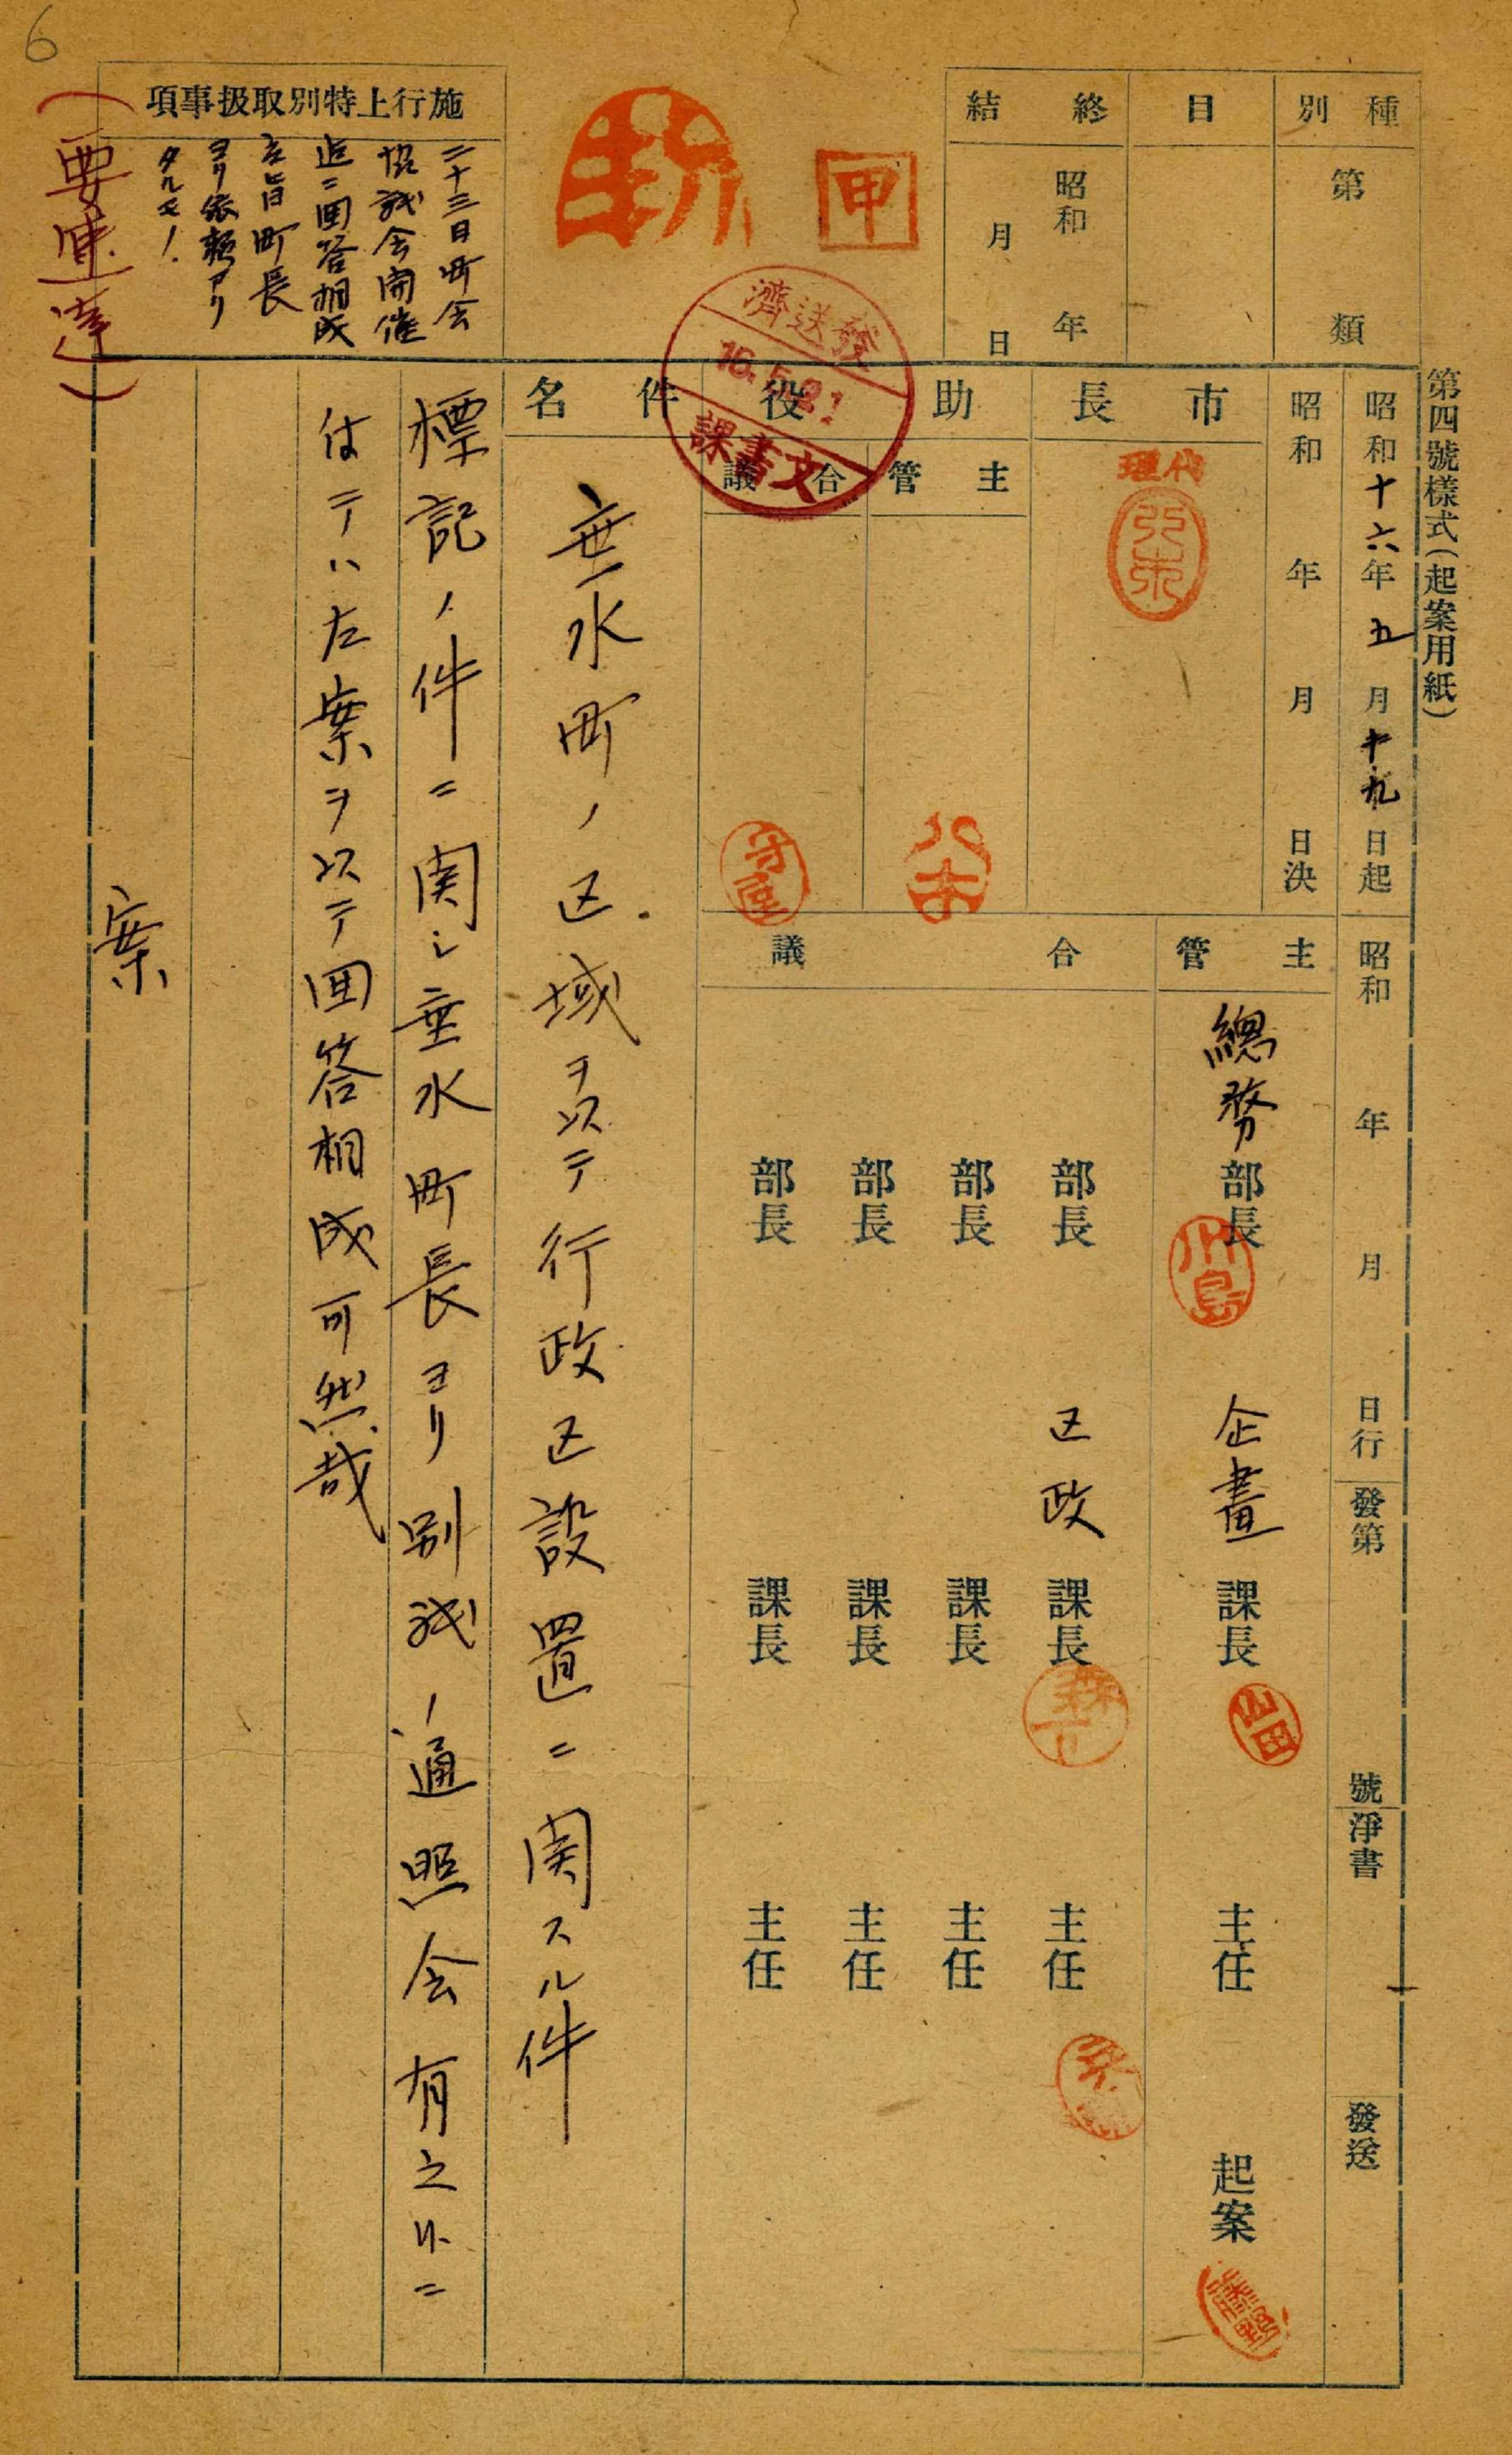 第四號樣式(起案用紙)
種別
第 類
目
終結
昭和 年
月 日
甲
施行上特別取扱事項
二十三日町会
協議会開催
迄ニ回答相成
度旨町長
ヨリ依頼アリ
タルモノ
(要速達)
6
昭和十六年五月十九日起
昭和 年 月 日決
昭和 年 月 日行
發第 號
淨書
發送
市長
代理
助役
主管
合議
八木
守屋
發送濟
16.5.21
文書課
主管
總務部長
川島
企畫課長
山田
主任
起案
藤野
合議
部長
区政課長
森下
主任
部長
課長
主任
部長
課長
主任
部長
課長
主任
件名
垂水町ノ区域ヲ以テ行政区設置ニ関スル件
標記ノ件ニ関シ垂水町長ヨリ別紙ノ通照会有之候ニ
付テハ左案ヲ以テ回答相成可然哉
案